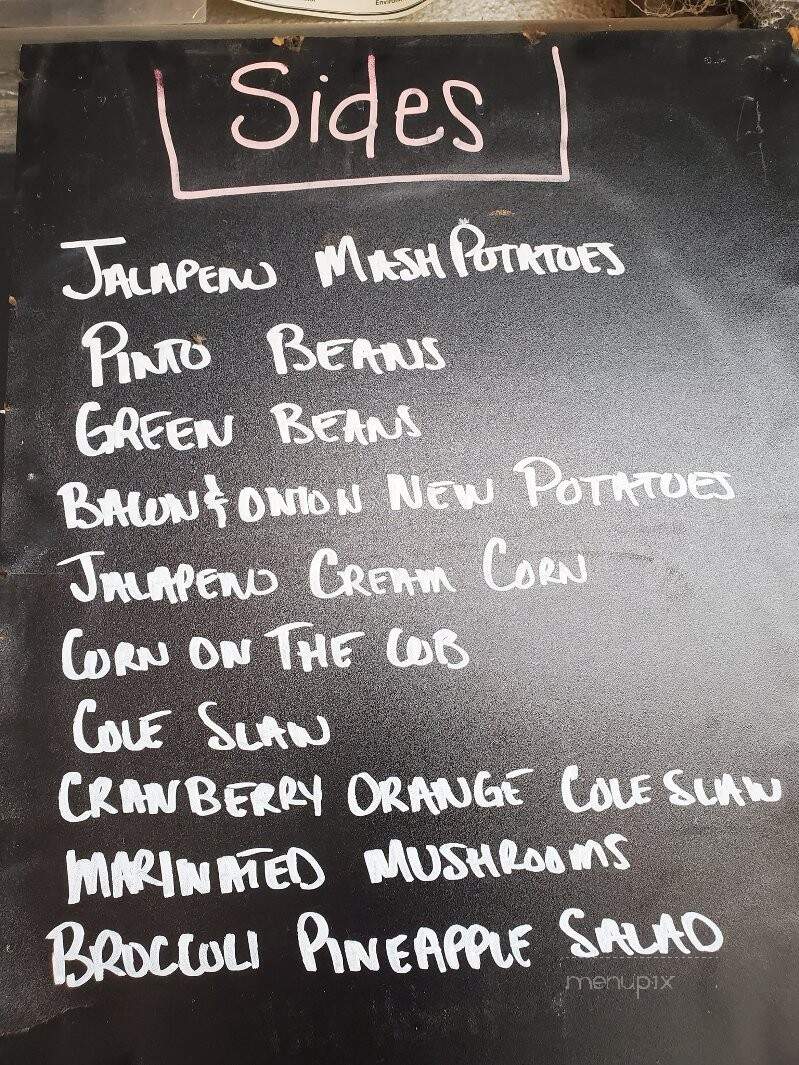 Sides
JALAPENO MASH POTATOES
PINTO BEANS
GREEN BEANS
BACON & ONION NEW POTATOES
JALAPENO CREAM CORN
CORN ON THE COB
COLE SLAW
CRANBERRY ORANGE COLE SLAW
MARINATED MUSHROOMS
BROCCOLI PINEAPPLE SALAD
menupix